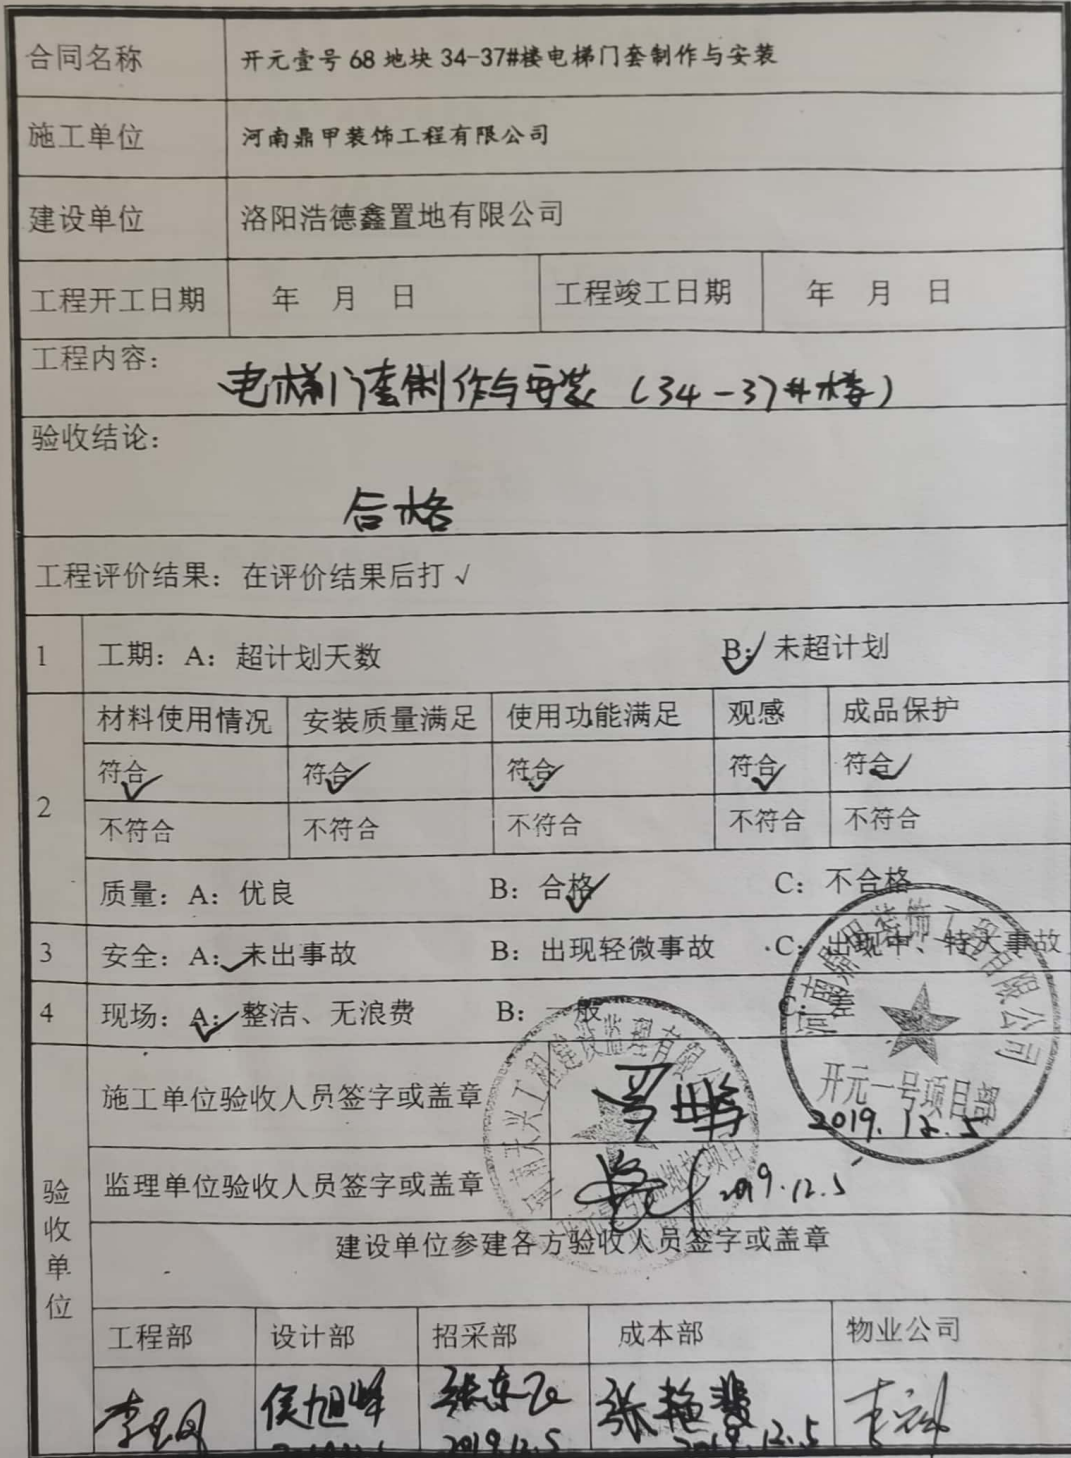 合同名称 开元壹号 68 地块 34-37#楼电梯门套制作与安装
施工单位 河南鼎甲装饰工程有限公司
建设单位 洛阳浩德鑫置地有限公司
工程开工日期 年 月 日 工程竣工日期 年 月 日
工程内容：
电梯门套制作与安装（34-37#楼）
验收结论：
合格
工程评价结果：在评价结果后打√
1 工期：A：超计划天数 B：✓未超计划
材料使用情况 安装质量满足 使用功能满足 观感 成品保护
符合✓ 符合✓ 符合✓ 符合✓ 符合✓
2
不符合 不符合 不符合 不符合 不符合
质量：A：优良 B：合格✓ C：不合格
3 安全：A：✓未出事故 B：出现轻微事故 C：出现中、特大事故
4 现场：A：✓整洁、无浪费 B：一般 C：差
河南鼎甲装饰工程有限公司
开元一号项目部
验收单位
施工单位验收人员签字或盖章
2019.12.5
监理单位验收人员签字或盖章 2019.12.5
建设单位参建各方验收人员签字或盖章
工程部 设计部 招采部 成本部 物业公司
侯旭峰 张艳斐
2019.12.5 2019.12.5